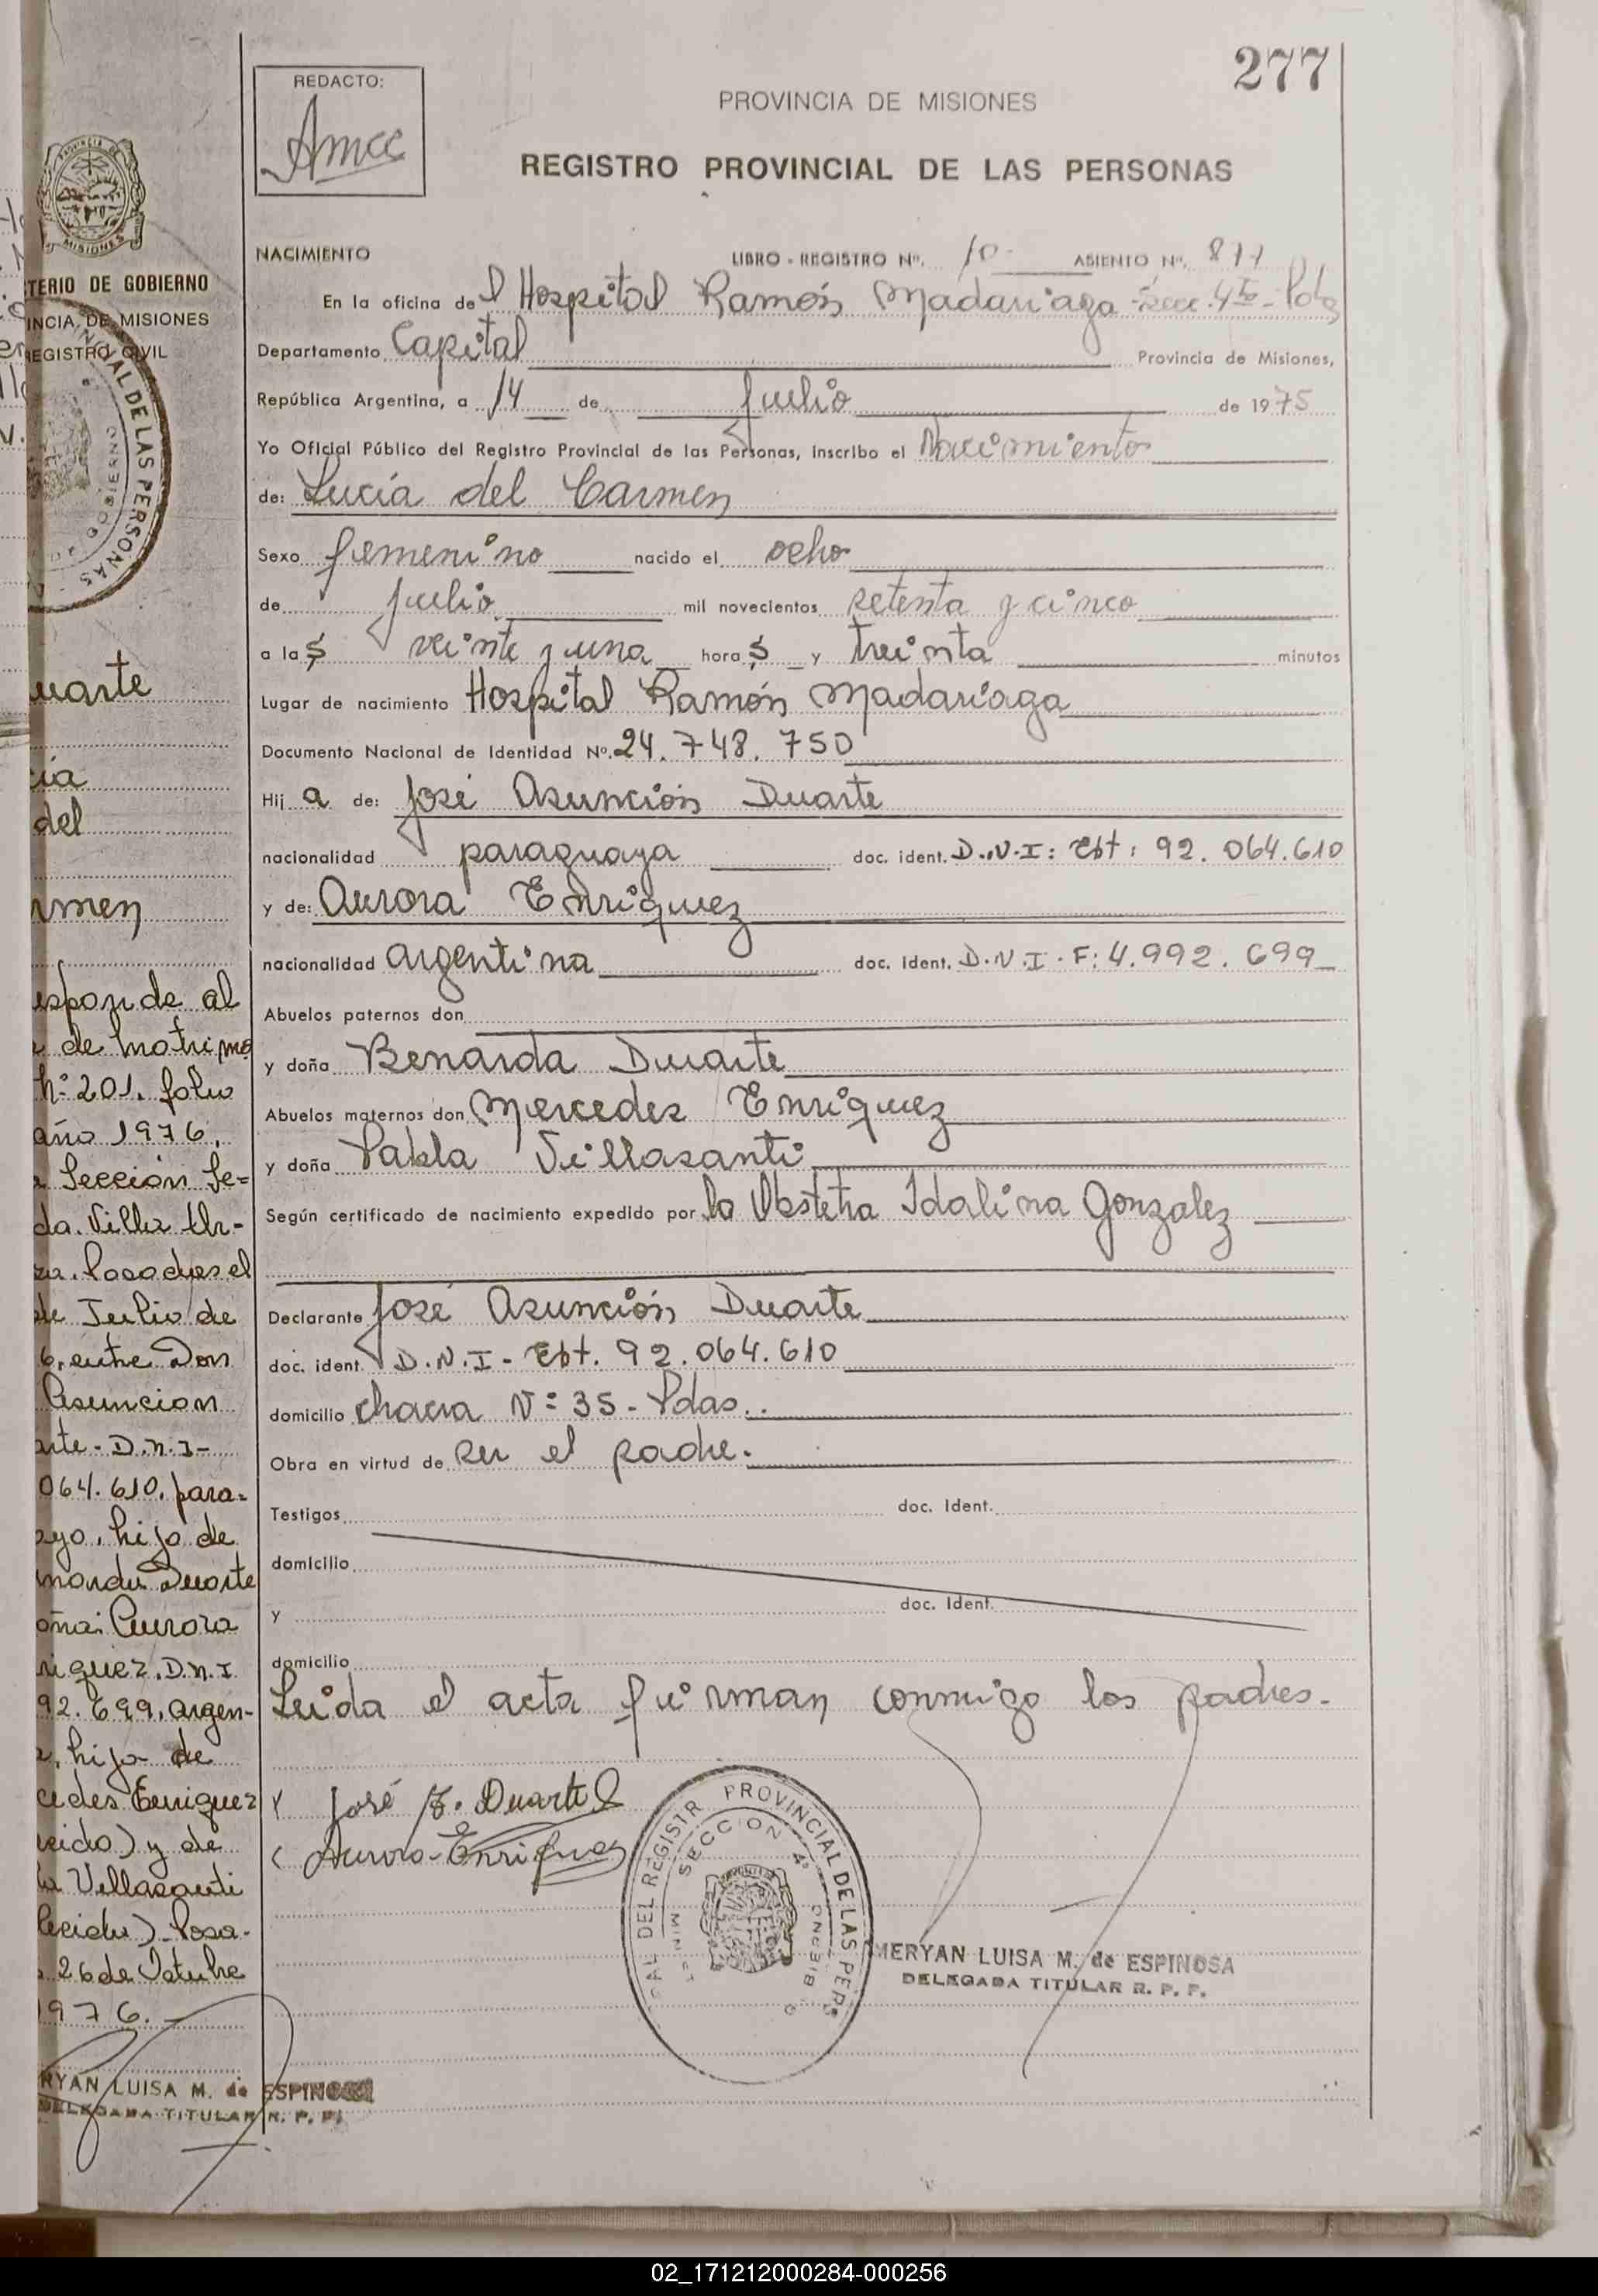 277
REDACTO:
PROVINCIA DE MISIONES
REGISTRO PROVINCIAL DE LAS PERSONAS
NACIMIENTO LIBRO - REGISTRO Nº. 10 ASIENTO Nº. 811
En la oficina del Hospital Ramón Madariaga Secc. 4ta - Pdas
Departamento Capital Provincia de Misiones,
República Argentina, a 14 de Julio de 1975
Yo Oficial Público del Registro Provincial de las Personas, inscribo el Nacimiento
de: Lucía del Carmen
Sexo femenino nacido el ocho
de julio mil novecientos setenta y cinco
a las veinte y una horas y treinta minutos
Lugar de nacimiento Hospital Ramón Madariaga
Documento Nacional de Identidad Nº. 24.748.750
Hija de: José Asunción Duarte
nacionalidad paraguaya doc. ident. D.N.I: Ext: 92.064.610
y de: Aurora Enriquez
nacionalidad argentina doc. ident. D.N.I.F: 4.992.699
Abuelos paternos don
y doña Benarda Duarte
Abuelos maternos don Mercedes Enriquez
y doña Pabla Villasanti
Según certificado de nacimiento expedido por la Obstetra Idalina Gonzalez
Declarante José Asunción Duarte
doc. ident. D.N.I - Ext. 92.064.610
domicilio chacra Nº 35 - Pdas..
Obra en virtud de ser el padre.
Testigos doc. Ident.
domicilio
y doc. Ident.
domicilio
Leida el acta firman conmigo los padres.
José A. Duarte
Aurora Enriquez
REGISTR PROVINCIAL DE LAS PER
SECCION 4ª
MERYAN LUISA M. de ESPINOSA
DELEGADA TITULAR R. P. P.
MISIONES
TERIO DE GOBIERNO
INCIA DE MISIONES
REGISTRO CIVIL
AL DE LAS PERSONAS
GOBIERNO
uarte
cia
del
rmen
esponde al
de matrimo
Nº 201. folio
año 1976.
Sección Se=
da. Villa Ur-
za. Posadas el
de Julio de
6, entre Don
Asuncion
arte - D.N.I-
064.610. para=
ayo, hijo de
narda Duarte
oña: Aurora
riquez. D.N.I.
92.699, argen-
a, hija de
cedes Enriquez
ecido) y de
la Villasanti
lecida). Posa-
26 de Octubre
1976.
RYAN LUISA M. de ESPINOSA
DELEGADA TITULAR R. P. P.
02_171212000284-000256